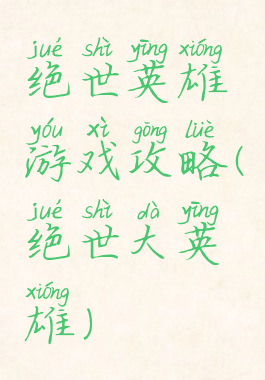 jué shì yīng xióng
绝世英雄
yóu xì gōng lüè
游戏攻略(
jué shì dà yīng
绝世大英
xióng
雄)